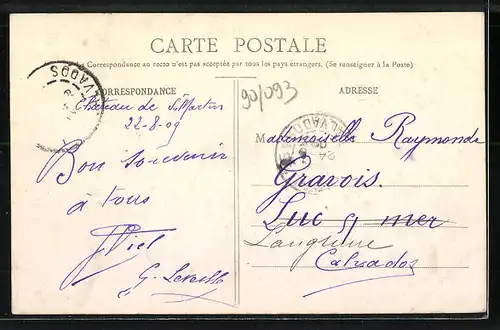 CARTE POSTALE
La Correspondance au recto n'est pas acceptée par tous les pays étrangers. (Se renseigner à la Poste)
CORRESPONDANCE
ADRESSE
90/093
CALVADOS
Château de St Martin
22-8-09
Bon souvenir
à tous
Viel
G.
CALVADOS
24
Mademoiselle Raymonde
Gravois.
Luc s/ mer
Langrune
Calvados